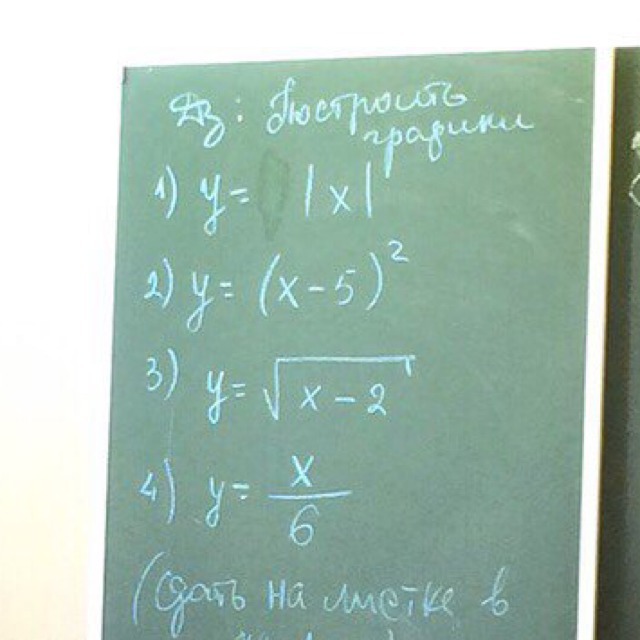 ДЗ: Построить
графики
1) y = |x|
2) y = (x-5)²
3) y = √x-2
4) y = x/6
(сдать на листке в